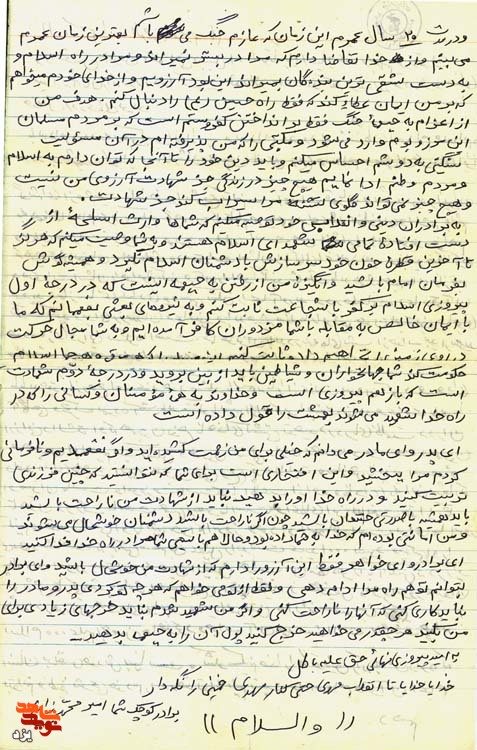 و در مدت ۲۵ سال عمرم این زمان که عازم جنگ می باشم بهترین زمان عمرم
می بینم و از خدا تقاضا دارم که مرا در بستر نمیراند و مرا در راه اسلام و
به دست شقی ترین بندگان بمیراند این بود آرزویم و از خدای خودم میخواهم
که به من ایمان عطا کند که فقط راه حسین (ع) را دنبال کنم. هدف من
از اعزام به جبهه جنگ فقط بر انداختن کفر و ستم است که بر مردم مسلمان
این مرز و بوم وارد می شود و مکتبی را که من پذیرفته ام در آن مسئولیت
سنگینی به دوشم احساس میکنم و باید دین خود را تا آنجا که توان دارم به اسلام
و مردم وطنم ادا نمایم هیچ چیز در زندگی جز شهادت آرزوی من نیست
و هیچ چیز نمی تواند گلوی تشنه مرا سیراب کند جز شهادت.
به برادران دینی و انقلابی خود توصیه میکنم که شماها وارث اسلحه از
دست افتاده تمامی شهدای اسلام هستند و به شما وصیت میکنم که هرگز
تا آخرین قطره خون خود سر سازش با دشمنان اسلام نگیرد و همیشه گوش
بفرمان امام باشید و انگیزه من از رفتن به جبهه اینست که در درجۀ اول
پیروزی اسلام بر کفر با شجاعت ثابت کنم و به نیروهای بعثی بفهمانم که ما
با ایمان خالص به مقابله با شما مزدوران کافر آمده ایم و به شما مجال حرکت
در روی زمین را نمی دهیم
حکومت کند شما جهانخواران و شیاطین باید از بین بروید و در درجۀ دوم شهادت
است که باز هم پیروزی است و خداوند به همۀ مؤمنان و کسانی را که در
راه خدا شهید می شوند بهشت را قول داده است
ای پدر و ای مادر می دانم که خیلی برای من زحمت کشیده اید و اگر نفهمیدم و نافرمانی
کردم مرا ببخشید و این افتخاری است برای شما که توانستید که چنین فرزندی
تربیت کنید و در راه خدا او را بدهید نباید از شهادت من ناراحت باشید
باید همیشه با صورتی خندان باشید چون اگر ناراحت باشد دشمنان خوشحال می شوند
و من امانتی بوده ام که خدا به شما داده بود و حالا هم بایستی شما مرا در راه خدا فدا کنید
ای برادر و ای خواهر فقط این آرزو را دارم که از شهادت من خوشحال باشید و ای برادر
بتوانم تو هم راه مرا ادامه دهی و فقط از تو می خواهم که هر چه تو کردی پدر و مادر را
نباید کاری کنی که آنها را ناراحت کنی و اگر من شهید شدم نباید خرجهای زیادی برای
من بکنید هر چقدر می خواهید خرج کنید پول آن را به جبهه بدهید.
به امید پیروزی نهائی حق علیه باطل
خدایا خدایا تا انقلاب مهدی حتی کنار مهدی خمینی را نگه دار
برادر کوچک شما امیر
(( والسلام ))
نوید شاهد
یزد